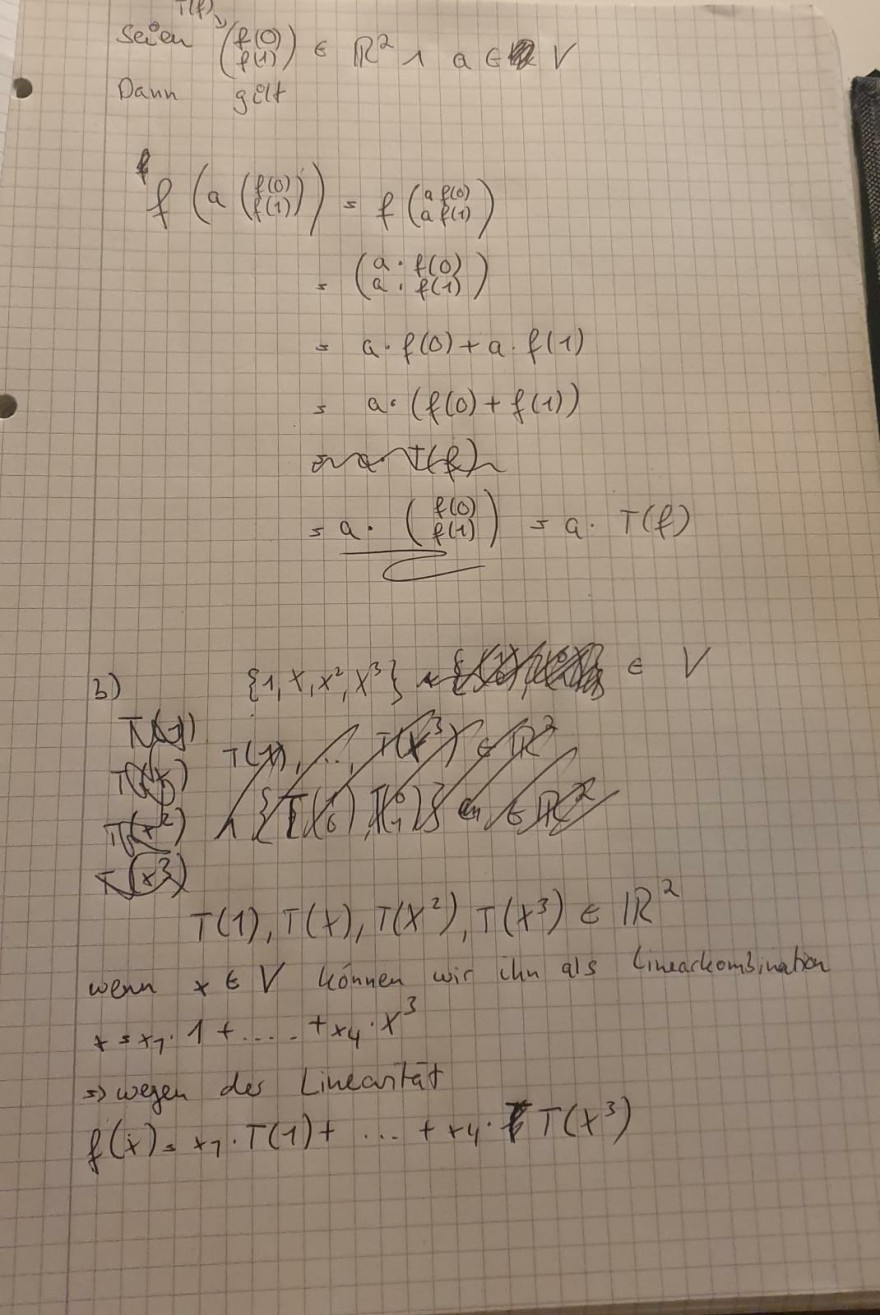 T(f)
Seien (f(0) f(1)) ∈ ℝ² ∧ a ∈ V
Dann gilt
f (a (f(0) f(1))) = f (a f(0) a f(1))
= (a · f(0) a · f(1))
= a · f(0) + a · f(1)
= a · (f(0) + f(1))
= a · T(f)
= a · (f(0) f(1)) = a · T(f)
b) {1, x, x², x³} ∈ V
T(1)
T(1), ..., T(x³) ∈ ℝ²
T(x)
T(x²)
T(x³)
T(1), T(x), T(x²), T(x³) ∈ ℝ²
wenn x ∈ V können wir ihn als Linearkombination
x = x₁ · 1 + ..... + x₄ · x³
=> wegen der Linearität
f(x) = x₁ · T(1) + ... + x₄ · T(x³)